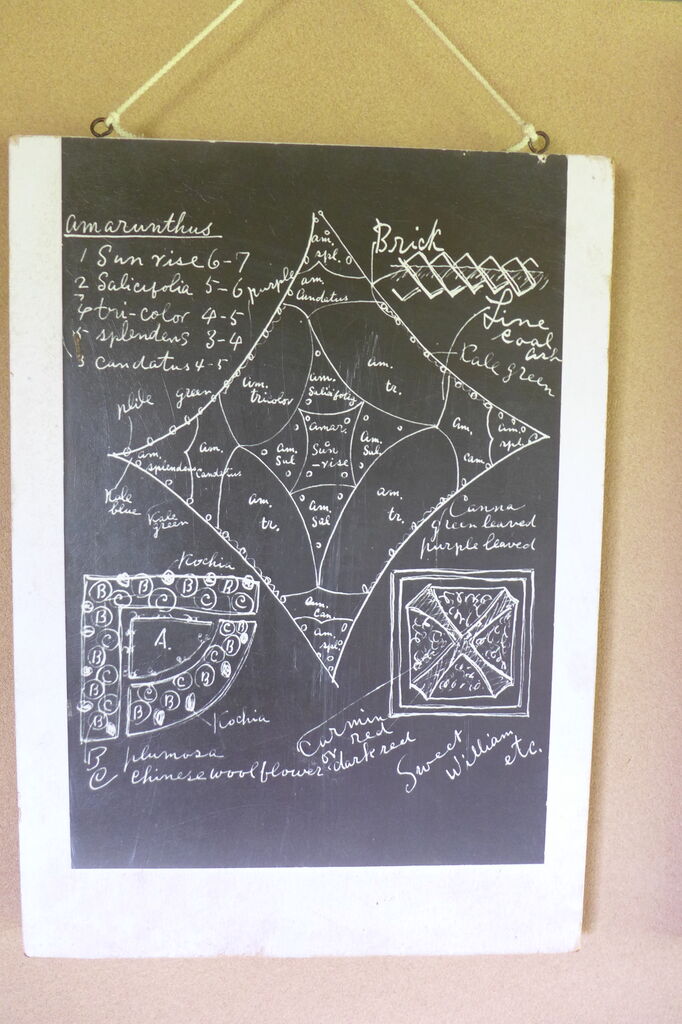 amarunthus
1 Sunrise 6-7
2 Salicifolia 5-6
4 tri-color 4-5
5 splendens 3-4
3 caudatus 4-5
purple
am.
spl.
am
Caudatus
Brick
Fine
coal
ash
Kale green
green
am.
tricolor
am.
Salicifolia
am.
tr.
am.
spl.
am.
cam.
am.
splendens
am.
Caudatus
am.
Sal
amar.
Sun
-rise
am.
Sal.
Kale
blue
Kale
green
am.
tr.
am.
Sal
am.
tr.
Canna
green leaved
purple leaved
Kochia
am.
Can
am.
spl
B B C C B C
B C B B C B B
A.
B C B C B B
Kochia
B plumosa
C Chinese woolflower
Carmin
or red
dark red
Sweet
William
etc.